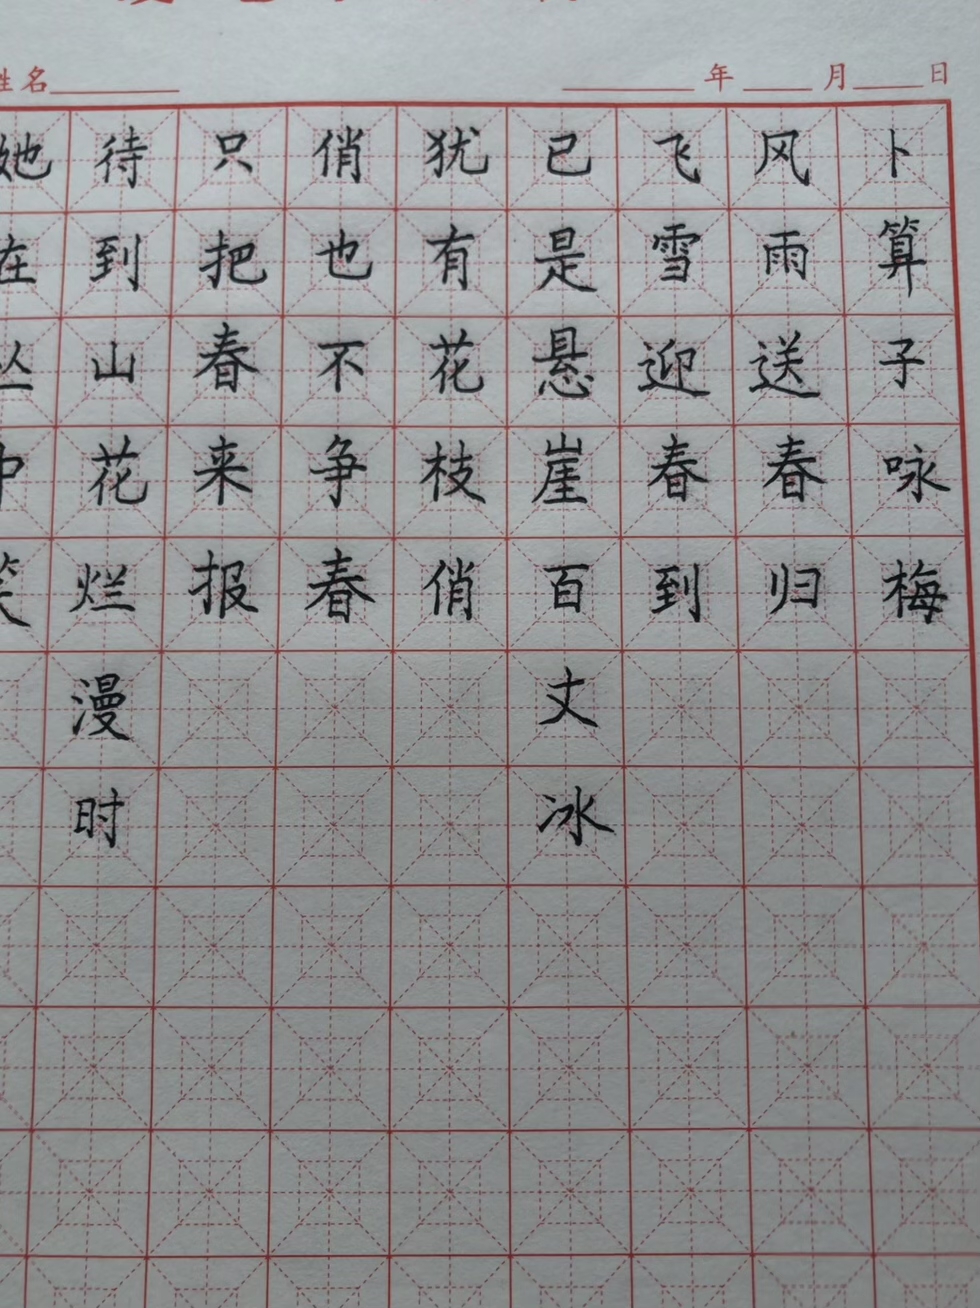 姓名 年 月 日
卜算子咏梅
风雨送春归
飞雪迎春到
已是悬崖百丈冰
犹有花枝俏
俏也不争春
只把春来报
待到山花烂漫时
她在丛中笑